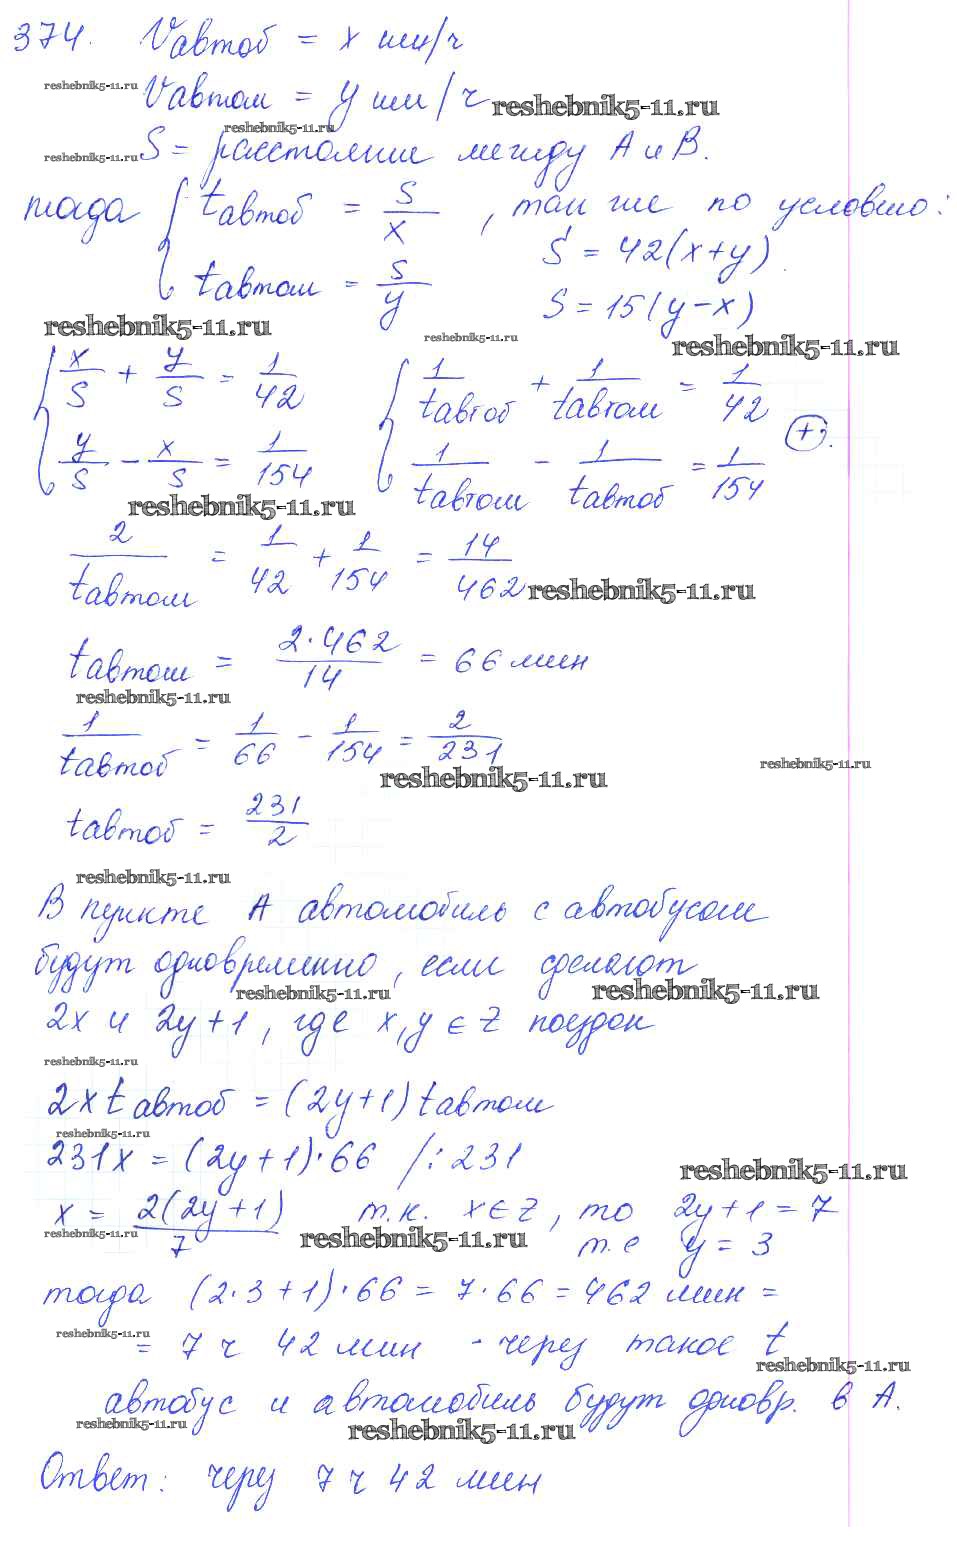 374. Vавтоб = x км/ч
reshebnik5-11.ru
Vавтом = y км/ч reshebnik5-11.ru
reshebnik5-11.ru
reshebnik5-11.ru S = расстояние между A и B.
тогда { tавтоб = S/x , так же по условию:
S = 42(x+y)
tавтом = S/y
S = 15(y-x)
reshebnik5-11.ru reshebnik5-11.ru reshebnik5-11.ru
{ x/S + y/S = 1/42 { 1/tавтоб + 1/tавтом = 1/42
(+).
y/S - x/S = 1/154 1/tавтом - 1/tавтоб = 1/154
reshebnik5-11.ru
2/tавтом = 1/42 + 1/154 = 14/462 reshebnik5-11.ru
tавтом = 2·462/14 = 66 мин
reshebnik5-11.ru
1/tавтоб = 1/66 - 1/154 = 2/231
reshebnik5-11.ru reshebnik5-11.ru
tавтоб = 231/2
reshebnik5-11.ru
В пункте А автомобиль с автобусом
будут одновременно, если сделают
reshebnik5-11.ru reshebnik5-11.ru
2x и 2y+1, где x,y ∈ Z поездок
reshebnik5-11.ru
2x tавтоб = (2y+1) tавтом
reshebnik5-11.ru
231x = (2y+1)·66 /:231
reshebnik5-11.ru
x = 2(2y+1)/7 т.к. x∈Z, то 2y+1 = 7
reshebnik5-11.ru reshebnik5-11.ru т.е y = 3
тогда (2·3+1)·66 = 7·66 = 462 мин =
reshebnik5-11.ru
= 7 ч 42 мин - через такое t
reshebnik5-11.ru
автобус и автомобиль будут одновр. в А.
reshebnik5-11.ru reshebnik5-11.ru
Ответ: через 7 ч 42 мин